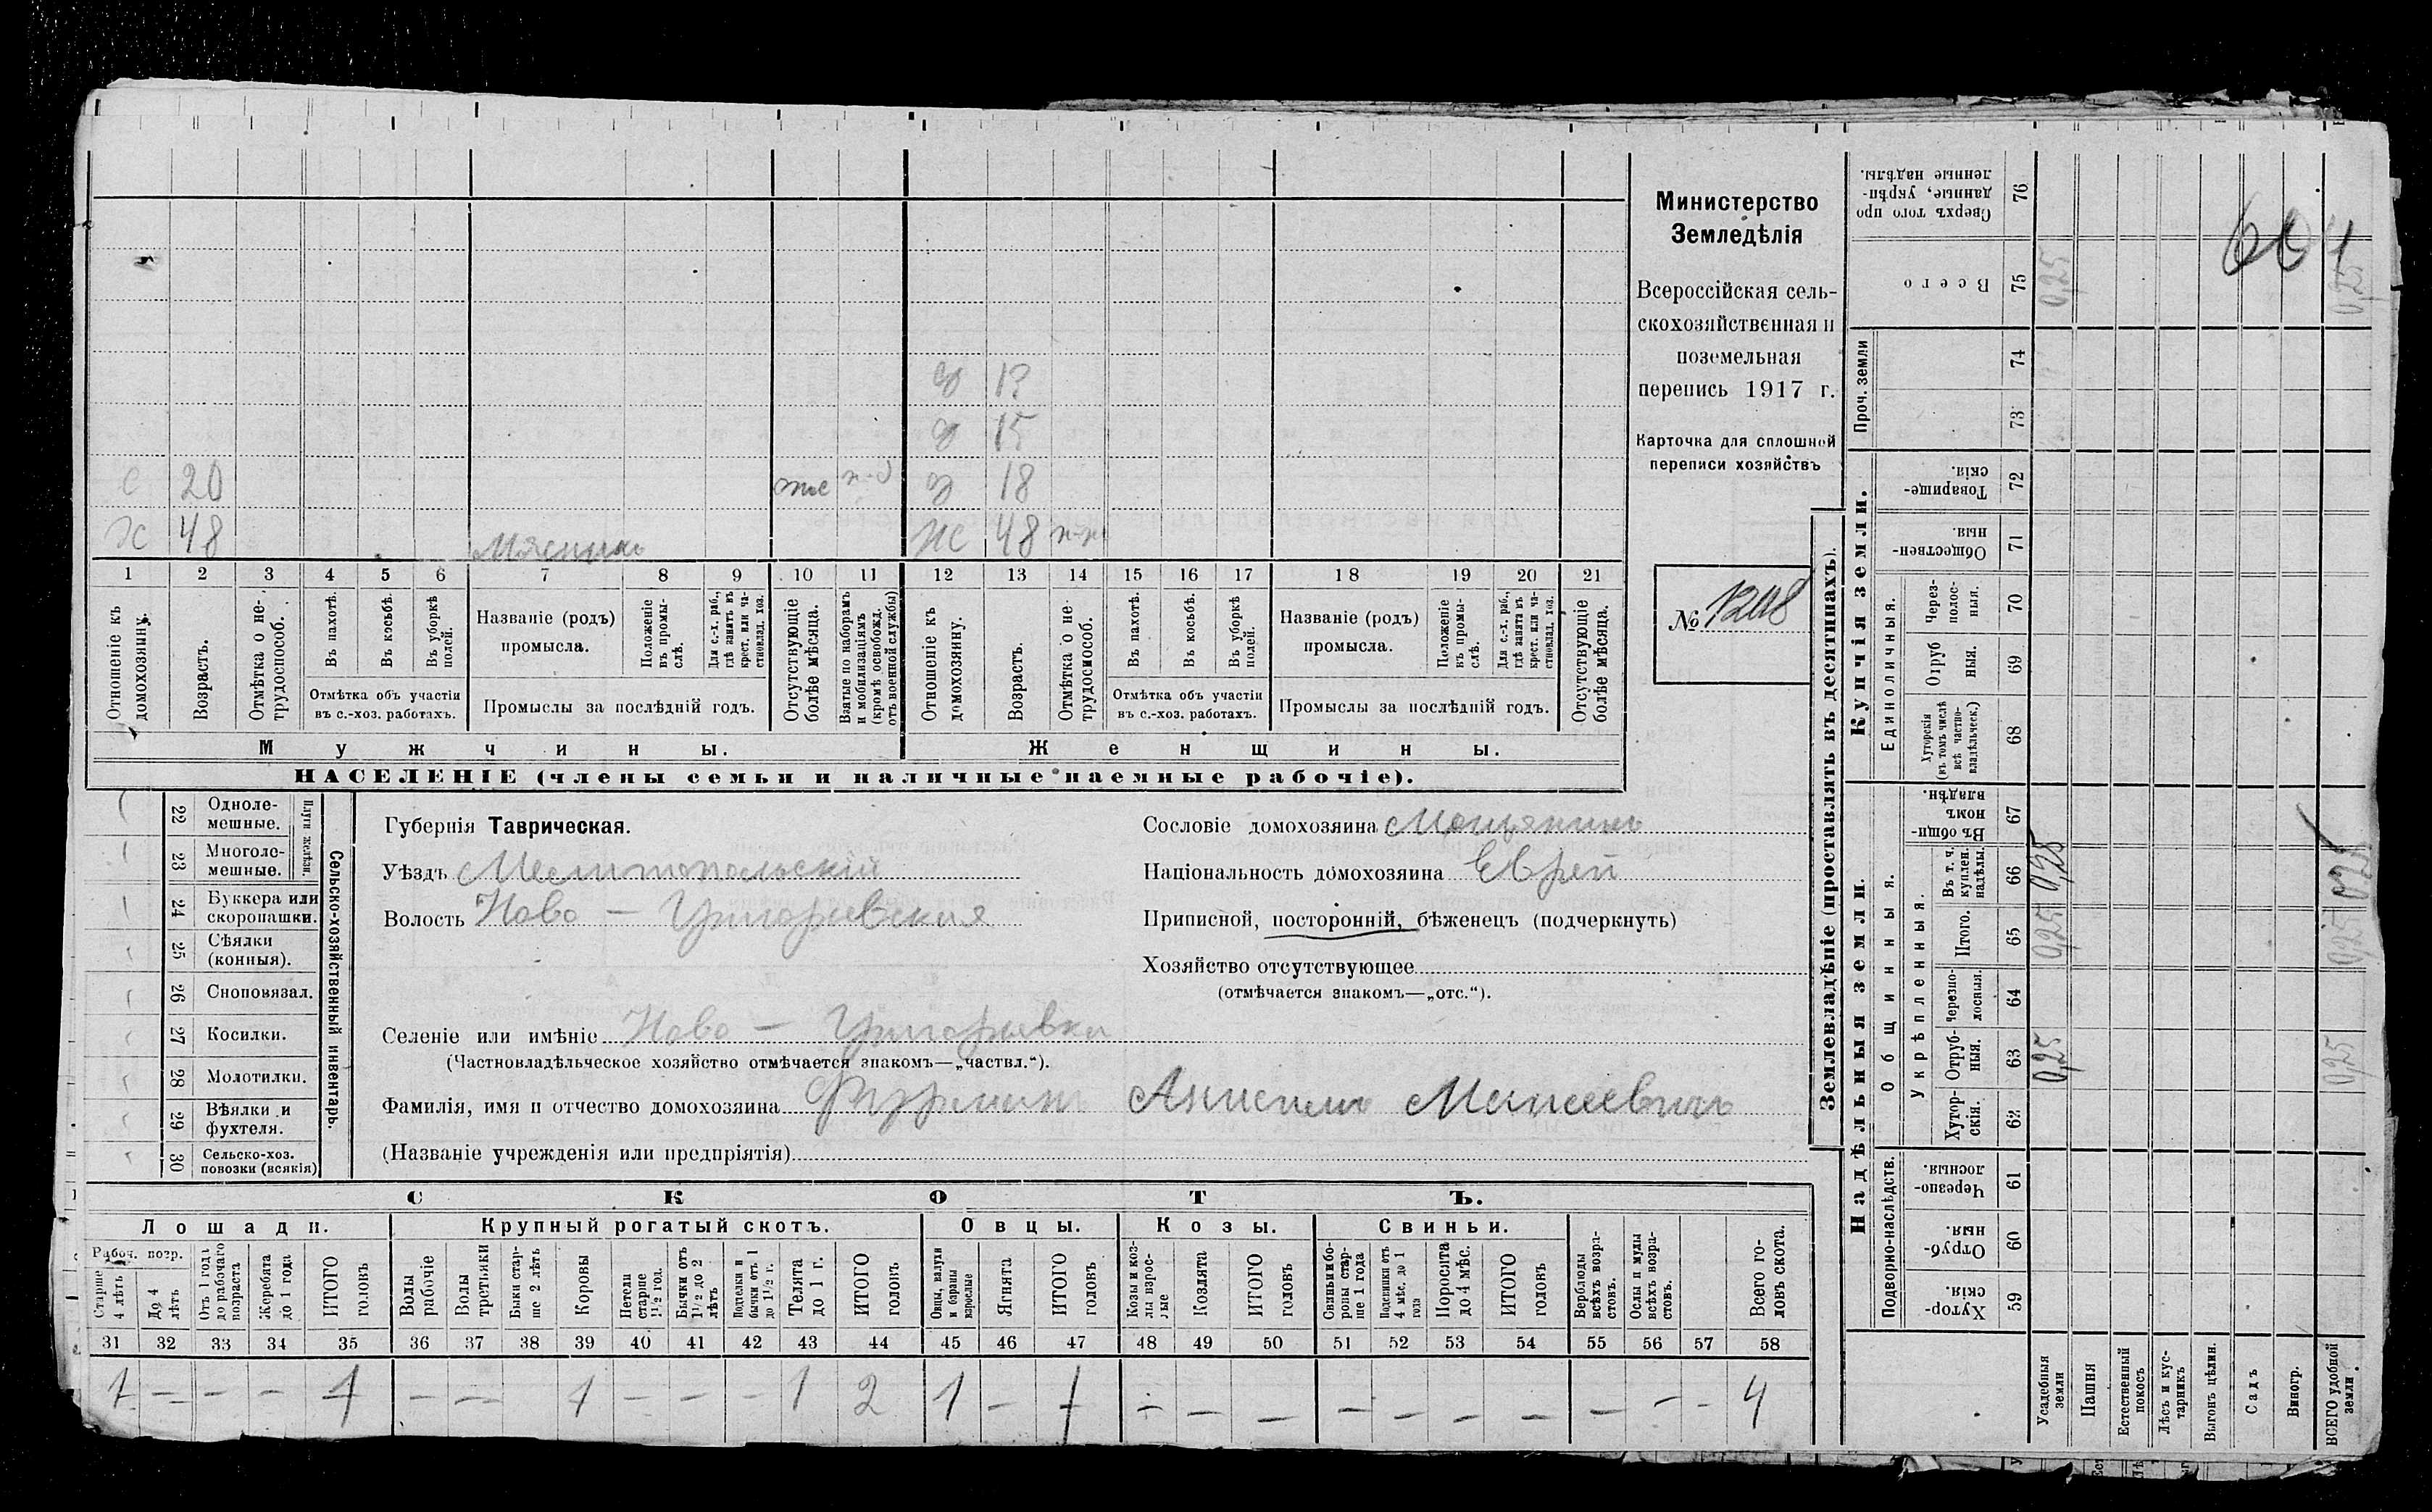 Министерство
Земледѣлія
Всероссійская сель-
скохозяйственная и
поземельная
перепись 1917 г.
Карточка для сплошной
переписи хозяйствъ
№ 1208
д 15
с 20 д 18
х 48 ж 48
1 2 3 4 5 6 7 8 9 10 11 12 13 14 15 16 17 18 19 20 21
Отношеніе къ домохозяину.
Возрастъ.
Отмѣтка о не-трудоспособ.
Въ пахотѣ.
Въ косьбѣ.
Въ уборкѣ полей.
Отмѣтка объ участіи
въ с.-хоз. работахъ.
Названіе (родъ)
промысла.
Положеніе въ промы-слѣ.
Для с.-х. раб., гдѣ занятъ въ крест. или ча-стновлад. хоз.
Промыслы за послѣдній годъ.
Отсутствующіе болѣе мѣсяца.
Взятые по наборамъ и мобилизаціямъ (кромѣ освобожд. отъ военной службы)
Отношеніе къ домохозяину.
Возрастъ.
Отмѣтка о не трудоспособ.
Въ пахотѣ.
Въ косьбѣ.
Въ уборкѣ полей.
Отмѣтка объ участіи
въ с.-хоз. работахъ.
Названіе (родъ)
промысла.
Положеніе въ промы-слѣ.
Для с.-х. раб., гдѣ занята въ крест. или ча-стновлад. хоз.
Промыслы за послѣдній годъ.
Отсутствующіе болѣе мѣсяца.
Мужчины. Женщины.
НАСЕЛЕНІЕ (члены семьи и наличные наемные рабочіе).
Сельско-хозяйственный инвентарь.
Плуги желѣзн.
22 Одноле-мешные.
23 Многоле-мешные.
24 Буккера или скоропашки.
25 Сѣялки (конныя).
26 Сноповязал.
27 Косилки.
28 Молотилки.
29 Вѣялки и фухтеля.
30 Сельско-хоз. повозки (всякія)
Губернія Таврическая.
Уѣздъ Мелитопольскій
Волость Ново - Григорьевская
Сословіе домохозяина Мѣщанинъ
Національность домохозяина Еврей
Приписной, посторонній, бѣженецъ (подчеркнуть)
Хозяйство отсутствующее
(отмѣчается знакомъ—„отс.“).
Селеніе или имѣніе Ново - Григорьевка
(Частновладѣльческое хозяйство отмѣчается знакомъ—„частвл.“).
Фамилія, имя и отчество домохозяина Моисеевичъ
(Названіе учрежденія или предпріятія)
СКОТЪ.
Лошади. Крупный рогатый скотъ. Овцы. Козы. Свиньи.
Рабоч. возр.
Старше 4 лѣтъ
До 4 лѣтъ
Отъ 1 года до рабочаго возраста
Жеребята до 1 года
ИТОГО головъ
Волы рабочіе
Волы третьяки
Быки стар-ше 2 лѣтъ
Коровы
Нетели старше 1½ год.
Бычки отъ 1½ до 2 лѣтъ
Подтелки и бычки отъ 1 до 1½ г.
Телята до 1 г.
ИТОГО головъ
Овцы, валухи и бараны взрослые
Ягнята
ИТОГО головъ
Козы и коз-лы взрос-лые
Козлята
ИТОГО головъ
Свиньи и бо-ровы стар-ше 1 года
Подсвинки отъ 4 мѣс. до 1 года
Поросята до 4 мѣс.
ИТОГО головъ
Верблюды всѣхъ возра-стовъ.
Ослы и мулы всѣхъ возра-стовъ.
Всего го-ловъ скота.
31 32 33 34 35 36 37 38 39 40 41 42 43 44 45 46 47 48 49 50 51 52 53 54 55 56 57 58
1 — — — 1 — — 1 — — — 1 2 1 — 1 — — — — — — — — — — 4
Землевладѣніе (проставлять въ десятинахъ).
Надѣльныя земли.
Купчія земли.
Проч. земли
Подворно-наслѣдств.
Общинныя.
Укрѣпленныя.
Единоличныя.
59 Хутор-скія.
60 Отруб-ныя.
61 Черезпо-лосныя.
62 Хутор-скія.
63 Отруб-ныя. 0,25 0,25
64 Черезпо-лосныя.
65 Итого. 0,25 0,25
66 Въ т. ч. куплен. надѣлы. 0,25 0,25
67 Въ общи-номъ владѣн.
68 Хуторскія (въ томъ числѣ всѣ частно-владѣльческ.)
69 Отруб ныя.
70 Через-полос-ныя.
71 Обществен-ныя.
72 Товарище-скія.
73
74
75 Всего 0,25 0,25
76 Сверхъ того про данные, укрѣп-ленные надѣлы.
Усадебныя земли
Пашня
Естественный покосъ
Лѣсъ и кус-тарникъ
Выгонъ цѣлин.
Садъ
Виногр.
ВСЕГО удобной земли.